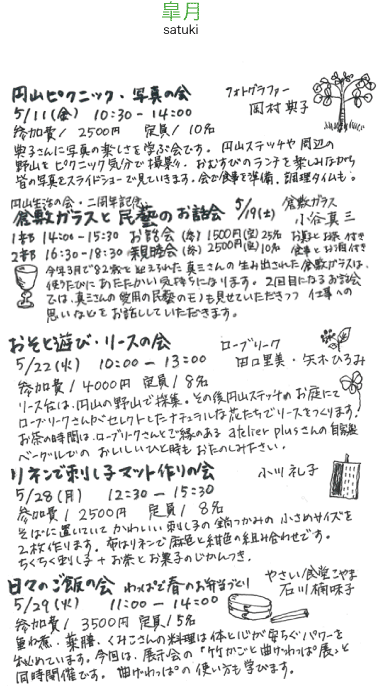 皐月
satuki
円山ピクニック・写真の会 フォトグラファー 岡村 典子
5/11(金) 10:30 - 14:00
参加費/ 2500円 定員/ 10名
典子さんに写真の楽しさを学ぶ会です。円山ステッチや周辺の
野山をピクニック気分で撮影。おむすびのランチを楽しみながら
皆の写真をスライドショーで見ていきます。会で食事を準備、調理タイムも。
円山生活の会・二周年記念
倉敷ガラスと民藝のお話会 5/19(土) 倉敷ガラス 小谷 真三
1部 14:00-15:30 お話会(参)1500円(定)25名 お茶とお菓子付き
2部 16:30-18:30 親睦会(参)2500円(定)10名 食事とお酒付き
今年3月で82歳を迎えられた真三さんの生み出された倉敷ガラスは、
使うたびにあたたかい気持ちになります。2回目になるお話会
では、真三さんの愛用の民藝のモノも見せていただきつつ 仕事への
思いなどをお話ししていただきます。
おそと遊び・リースの会 ローブリーク
5/22(火) 10:00 - 13:00 田口里美・矢木ひろみ
参加費/ 4000円 定員/ 8名
リース台は、円山の野山で採集。その後円山ステッチのお庭にて
ローブリークさんがセレクトしたナチュラルな花たちでリースをつくります。
お茶の時間は、ローブリークさんとご縁のある atelier plusさんの自家製
ベーグルでの おいしいひと時も おたのしみださい。
リネンで刺し子マット作りの会 小川 礼子
5/28(月) 12:30 - 15:30
参加費/ 2500円 定員/ 8名
そばに置いていて かわいい 刺し子の 鍋つかみの 小さめサイズを
2枚作ります。布はリネンで 麻色と紺色の組み合わせです。
ちくちく刺し子 + お茶とお菓子のじかんつき。
日々のご飯の会 わっぱで春のお弁当づくり やさい食堂こやま
5/29(火) 11:00 - 14:00 石川 楠味子
参加費/ 3500円 定員/ 5名
重ね煮、薬膳、くみこさんの料理は体と心が安らぐパワーを
秘めています。今回は、展示会の『竹かごと曲げわっぱ展』と
同時開催です。曲げわっぱの使い方も学びます。